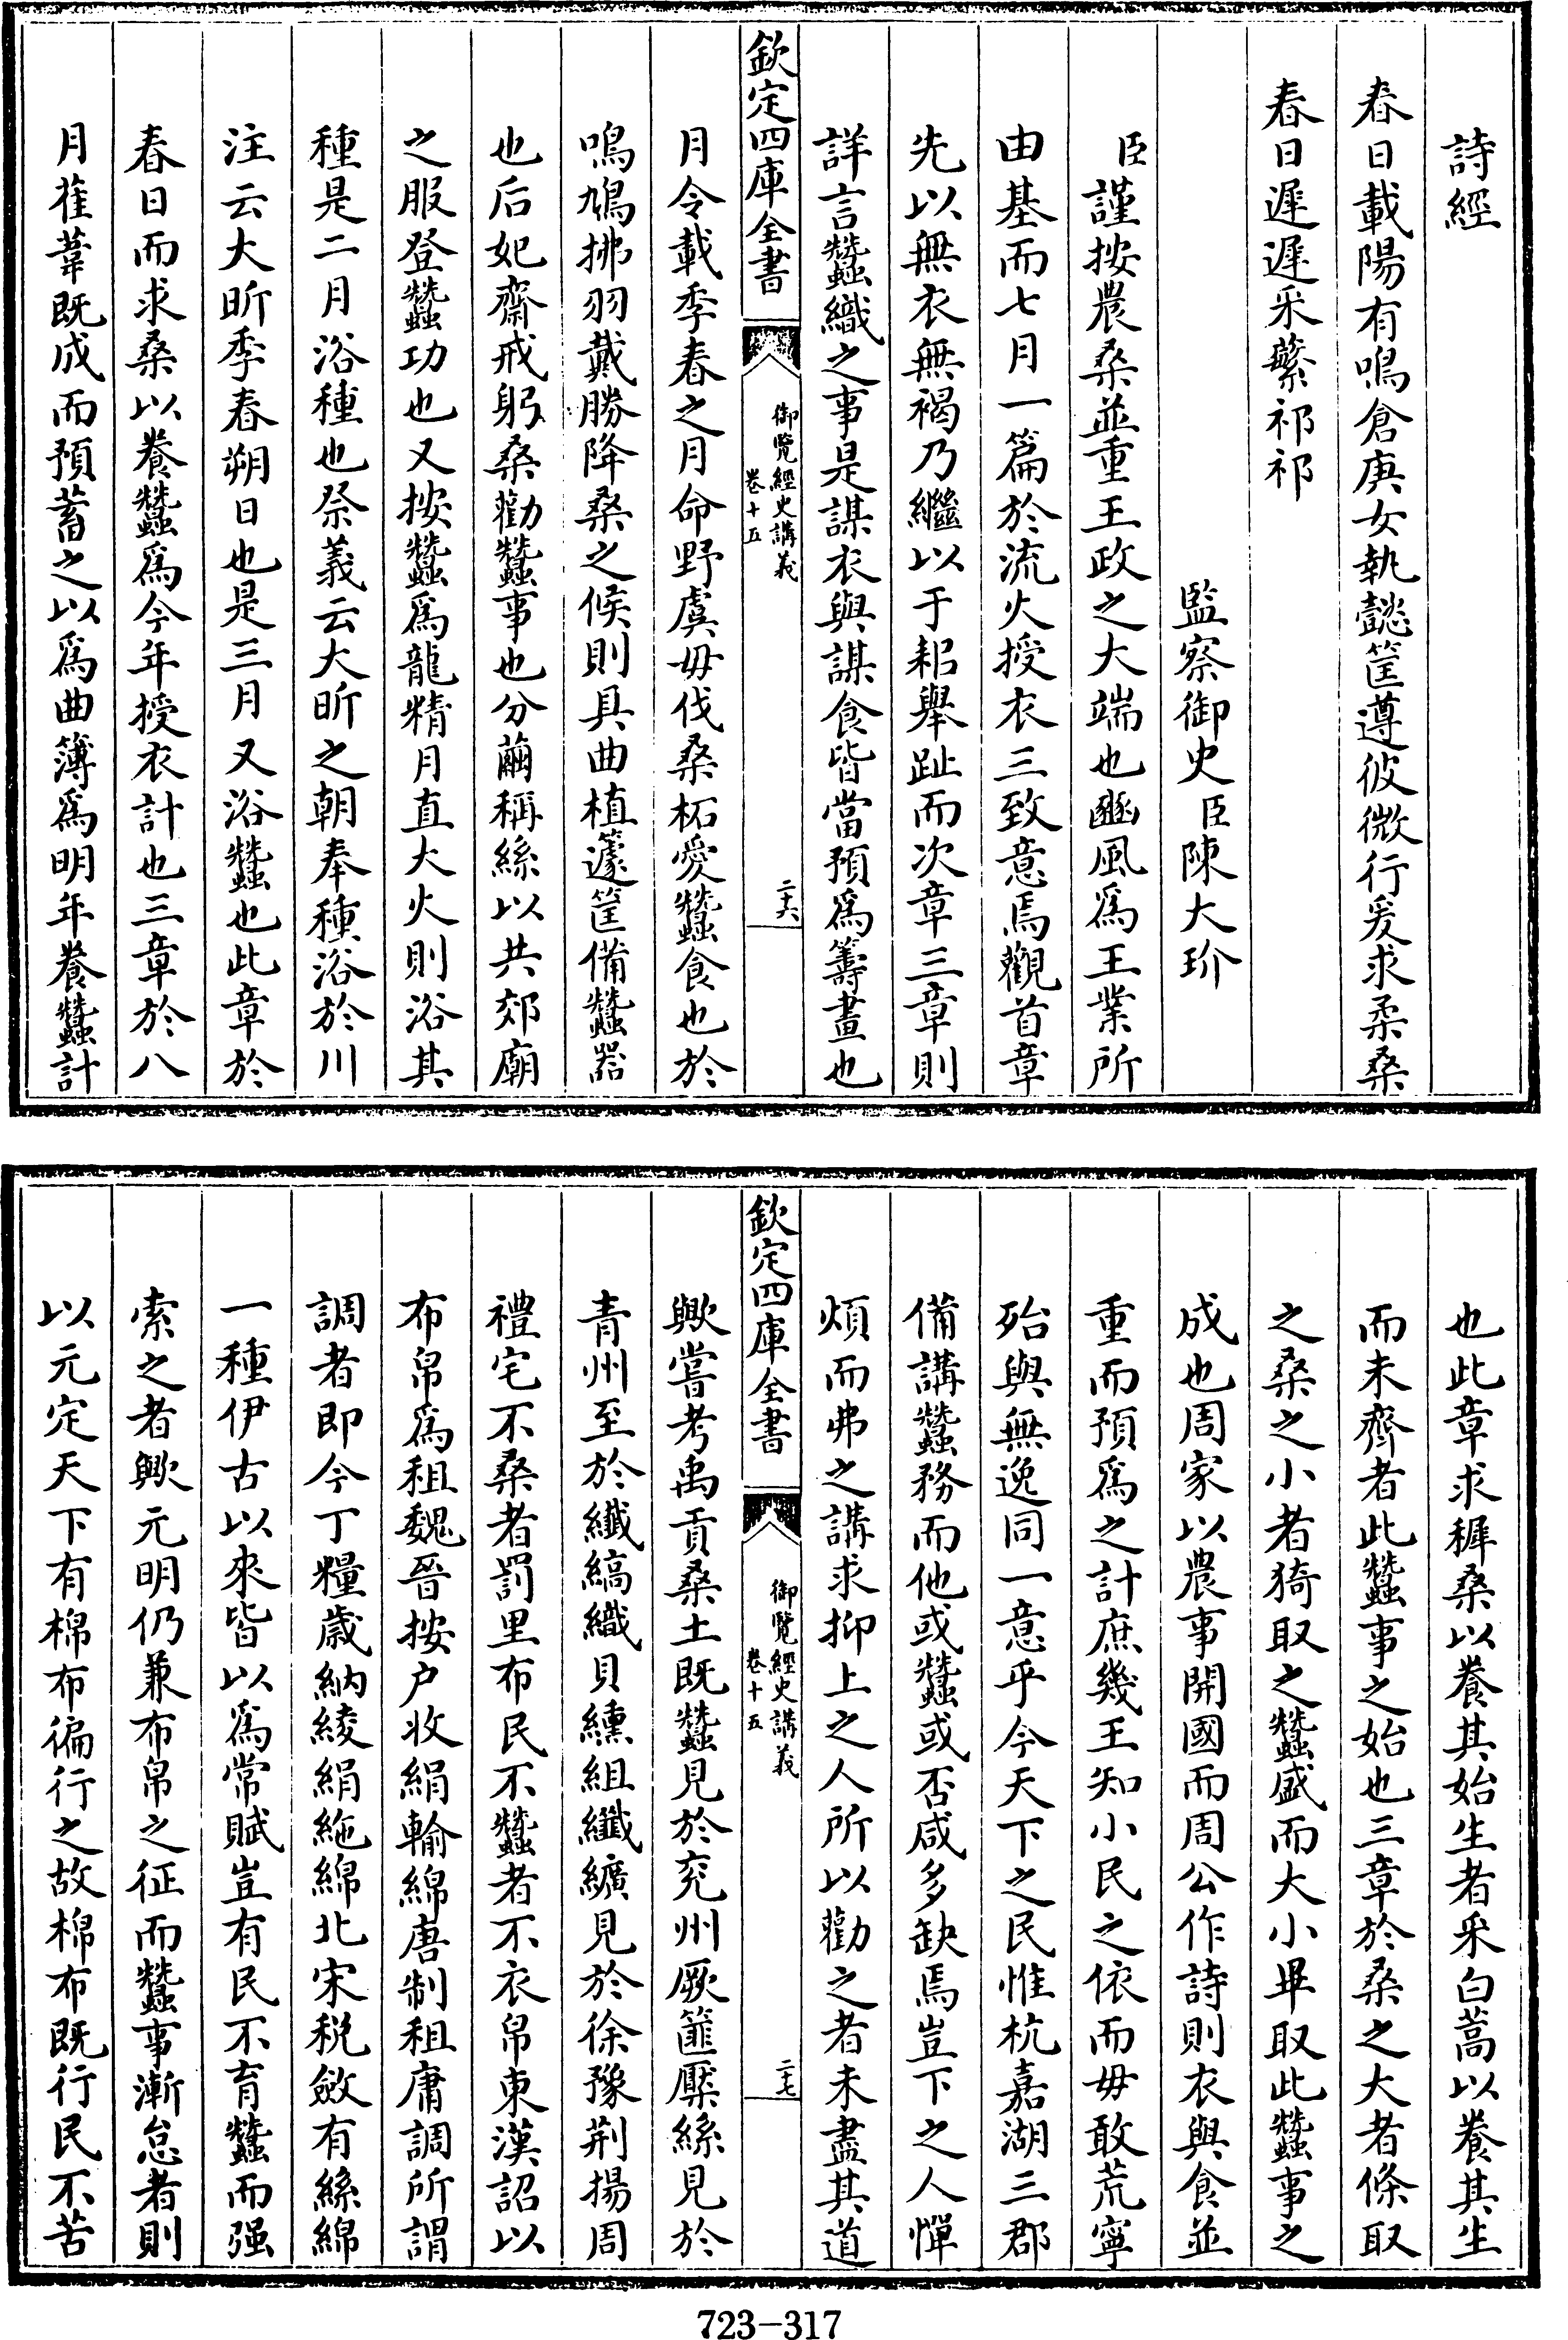 詩經
春日載陽有鳴倉庚女執懿筐遵彼微行爰求柔桑
春日遲遲采蘩祁祁
監察御史臣陳大玠
臣謹按農桑並重王政之大端也豳風爲王業所
由基而七月一篇於流火授衣三致意焉觀首章
先以無衣無褐乃繼以于耜舉趾而次章三章則
詳言蠶織之事是謀衣與謀食皆當預爲籌畫也
欽定四庫全書
御覽經史講義
卷十五
二十六
月令載季春之月命野虞毋伐桑柘愛蠶食也於
鳴鳩拂羽戴勝降桑之候則具曲植籧筐備蠶器
也后妃齋戒躬桑勸蠶事也分繭稱絲以共郊廟
之服登蠶功也又按蠶爲龍精月直大火則浴其
種是二月浴種也祭義云大昕之朝奉種浴於川
注云大昕季春朔日也是三月又浴蠶也此章於
春日而求桑以養蠶爲今年授衣計也三章於八
月萑葦既成而預蓄之以爲曲簿爲明年養蠶計
也此章求穉桑以養其始生者采白蒿以養其生
而未齊者此蠶事之始也三章於桑之大者條取
之桑之小者猗取之蠶盛而大小畢取此蠶事之
成也周家以農事開國而周公作詩則衣與食並
重而預爲之計庶幾王知小民之依而毋敢荒寧
殆與無逸同一意乎今天下之民惟杭嘉湖三郡
備講蠶務而他或蠶或否咸多缺焉豈下之人憚
煩而弗之講求抑上之人所以勸之者未盡其道
欽定四庫全書
御覽經史講義
卷十五
二十七
歟嘗考禹貢桑土既蠶見於兖州厥篚檿絲見於
青州至於纖縞織貝纁組纖纊見於徐豫荆揚周
禮宅不桑者罰里布民不蠶者不衣帛東漢詔以
布帛爲租魏晉按户收絹輸綿唐制租庸調所謂
調者即今丁糧歲納綾絹絁綿北宋税斂有絲綿
一種伊古以來皆以爲常賦豈有民不育蠶而强
索之者歟元明仍兼布帛之征而蠶事漸怠者則
以元定天下有棉布徧行之故棉布既行民不苦
723-317